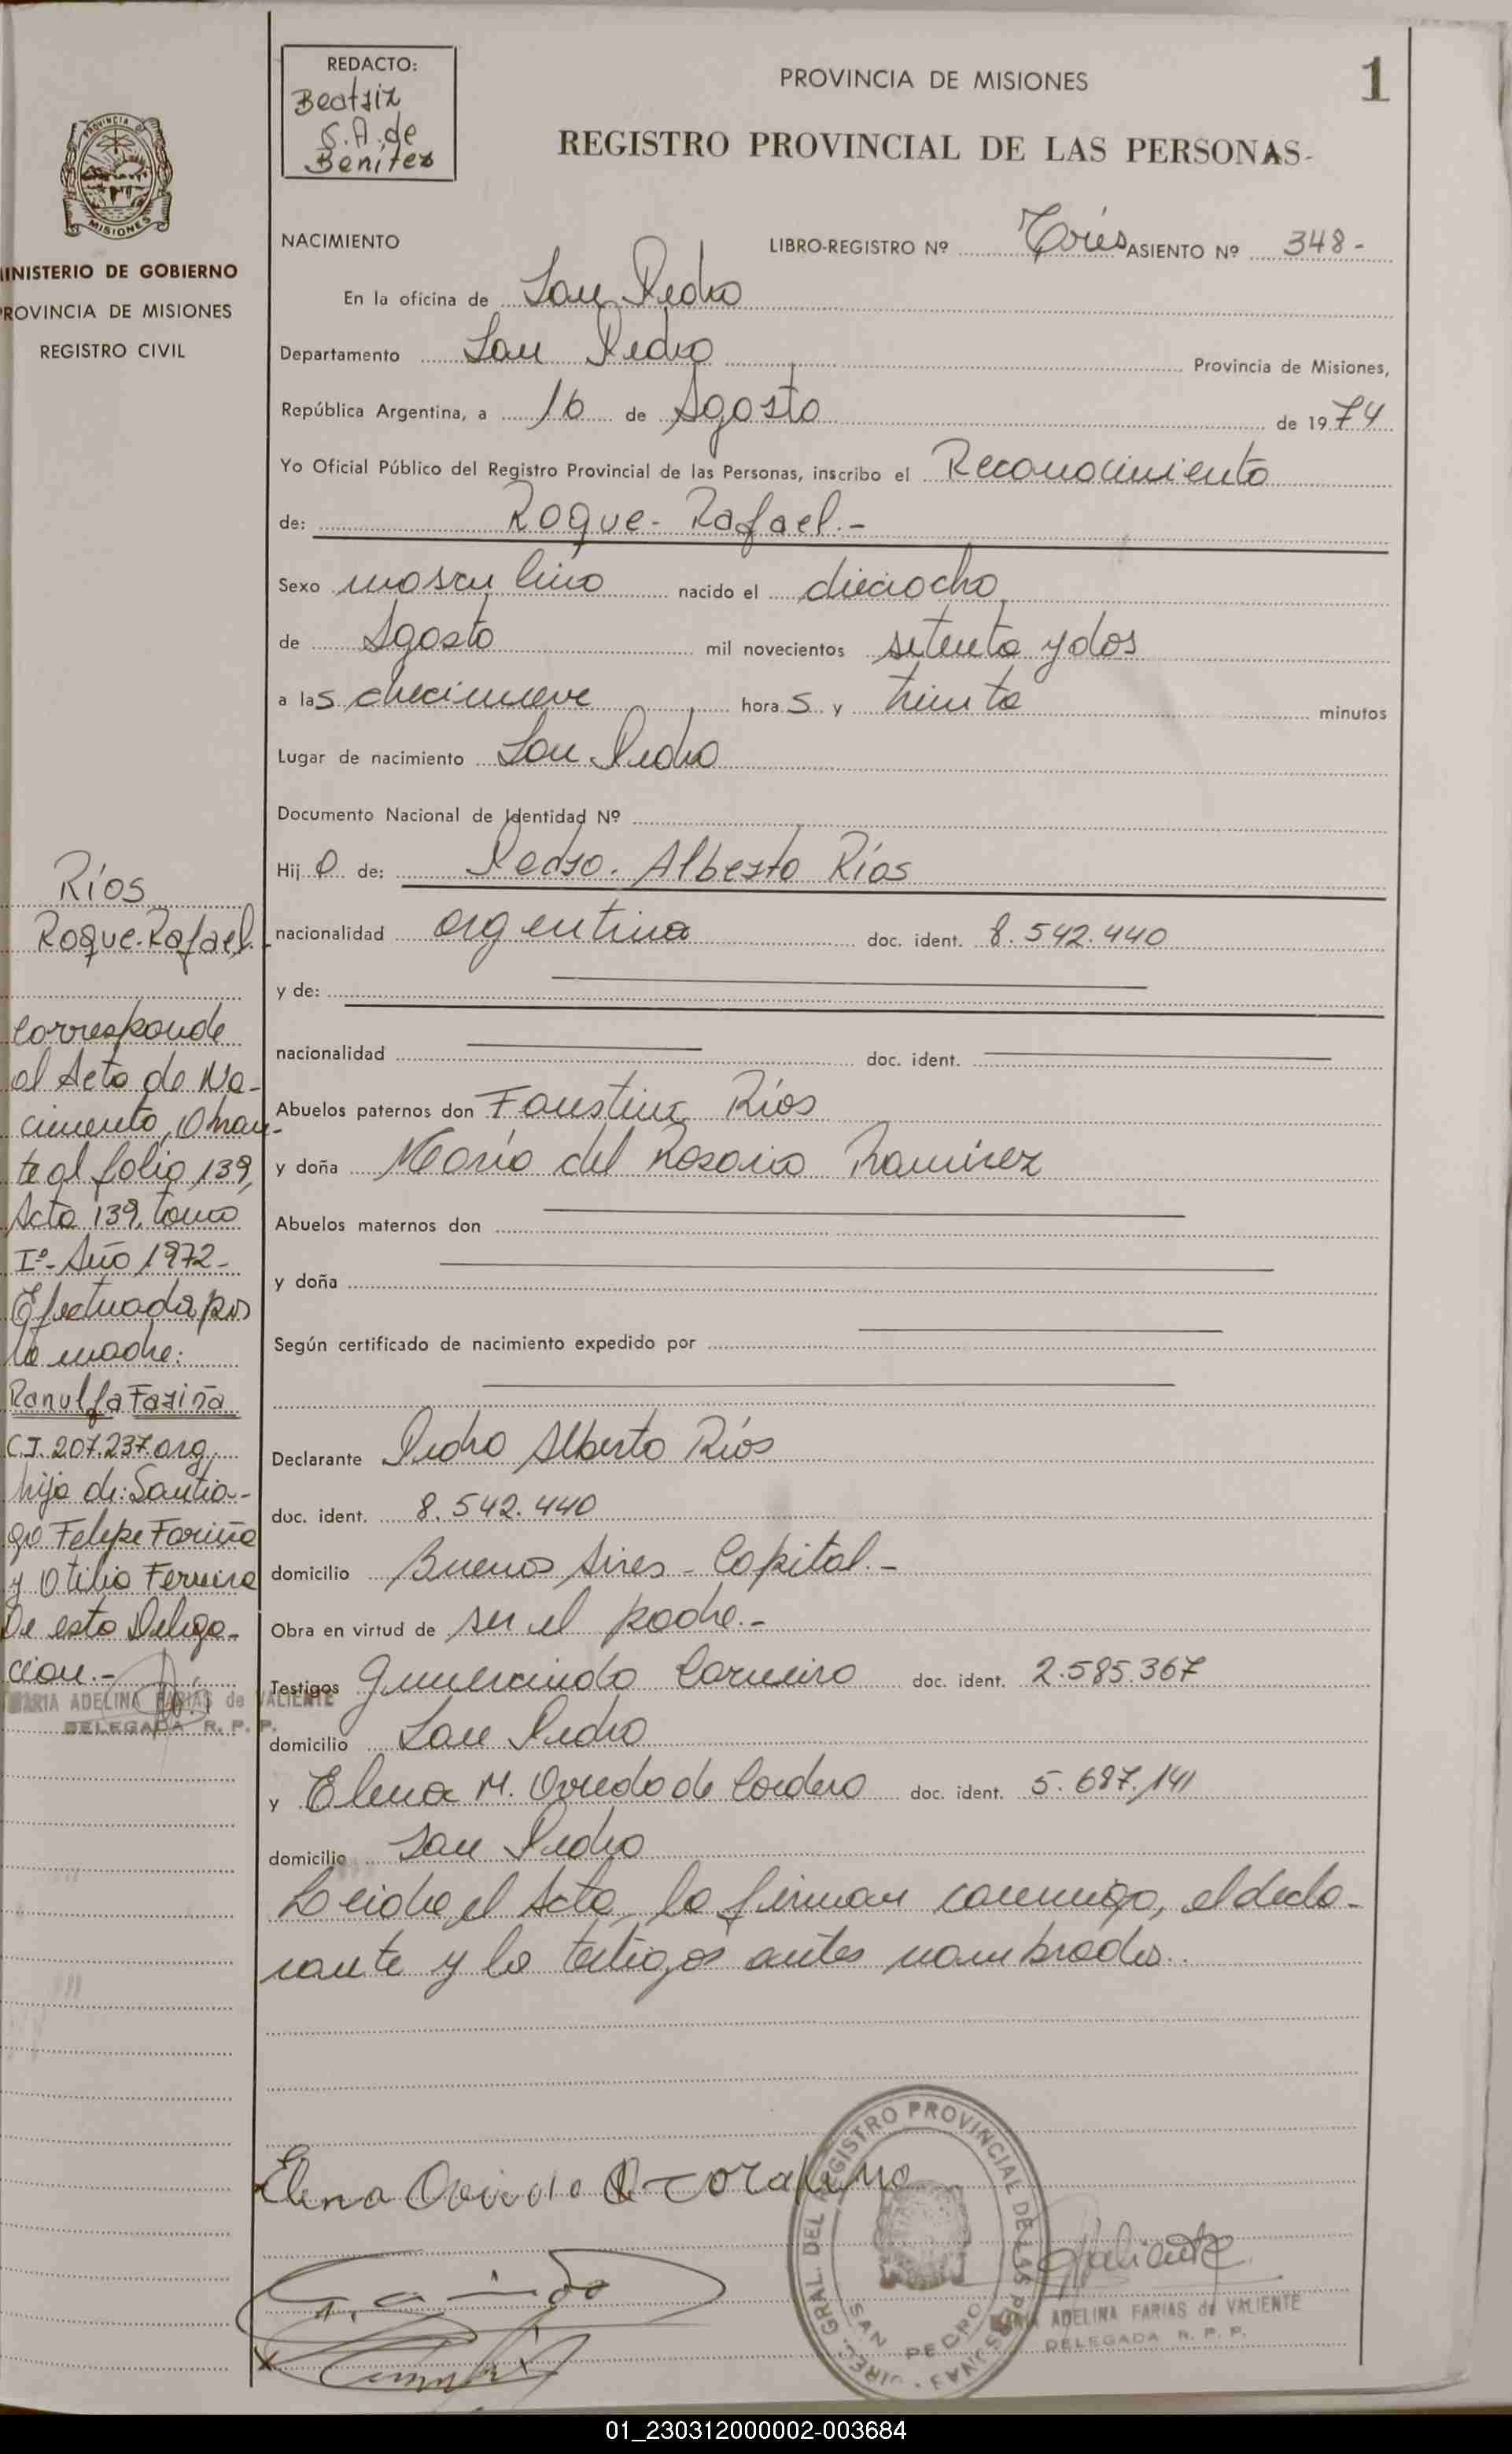 1
REDACTO:
Beatriz
S.A. de
Benitez
PROVINCIA DE MISIONES
REGISTRO PROVINCIAL DE LAS PERSONAS-
PROVINCIA D
MISIONES
MINISTERIO DE GOBIERNO
PROVINCIA DE MISIONES
REGISTRO CIVIL
NACIMIENTO LIBRO-REGISTRO Nº Tres ASIENTO Nº 348-
En la oficina de San Pedro
Departamento San Pedro Provincia de Misiones,
República Argentina, a 16 de Agosto de 1974
Yo Oficial Público del Registro Provincial de las Personas, inscribo el Reconocimiento
de: Roque-Rafael.-
Sexo masculino nacido el dieciocho
de Agosto mil novecientos setenta y dos
a las diecinueve horas y treinta minutos
Lugar de nacimiento San Pedro
Documento Nacional de Identidad Nº
Hijo de: Pedro. Alberto Ríos
nacionalidad argentina doc. ident. 8.542.440
y de:
nacionalidad doc. ident.
Abuelos paternos don Faustino Ríos
y doña María del Rosario Ramirez
Abuelos maternos don
y doña
Según certificado de nacimiento expedido por
Declarante Pedro Alberto Ríos
doc. ident. 8.542.440
domicilio Buenos Aires - Capital.-
Obra en virtud de ser el padre.-
Testigos Gumercindo Carneiro doc. ident. 2.585.367
domicilio San Pedro
y Elena M. Oviedo de Cordero doc. ident. 5.687.141
domicilio San Pedro
Leida el Acta, la firman conmigo, el decla-
rante y lo testigos antes nombrados.
Ríos
Roque-Rafael.
Corresponde
al Acta de Na-
cimiento, Obran-
te al folio 139,
Acta 139, tomo
Iº- Año 1972-
Efectuada por
la madre:
Ranulfa Fariña
C.I. 207.237 arg.
hija de: Santia-
go Felipe Fariña
y Otilia Ferreira
De esta Delega-
cion.-
MARIA ADELINA FARIAS de VALIENTE
DELEGADA R. P. P.
Elena Oviedo
DIREC. GRAL. DEL REGISTRO PROVINCIAL DE LAS PERSONAS
SAN PEDRO
Valiente
MARIA ADELINA FARIAS de VALIENTE
DELEGADA R. P. P.
01_230312000002-003684